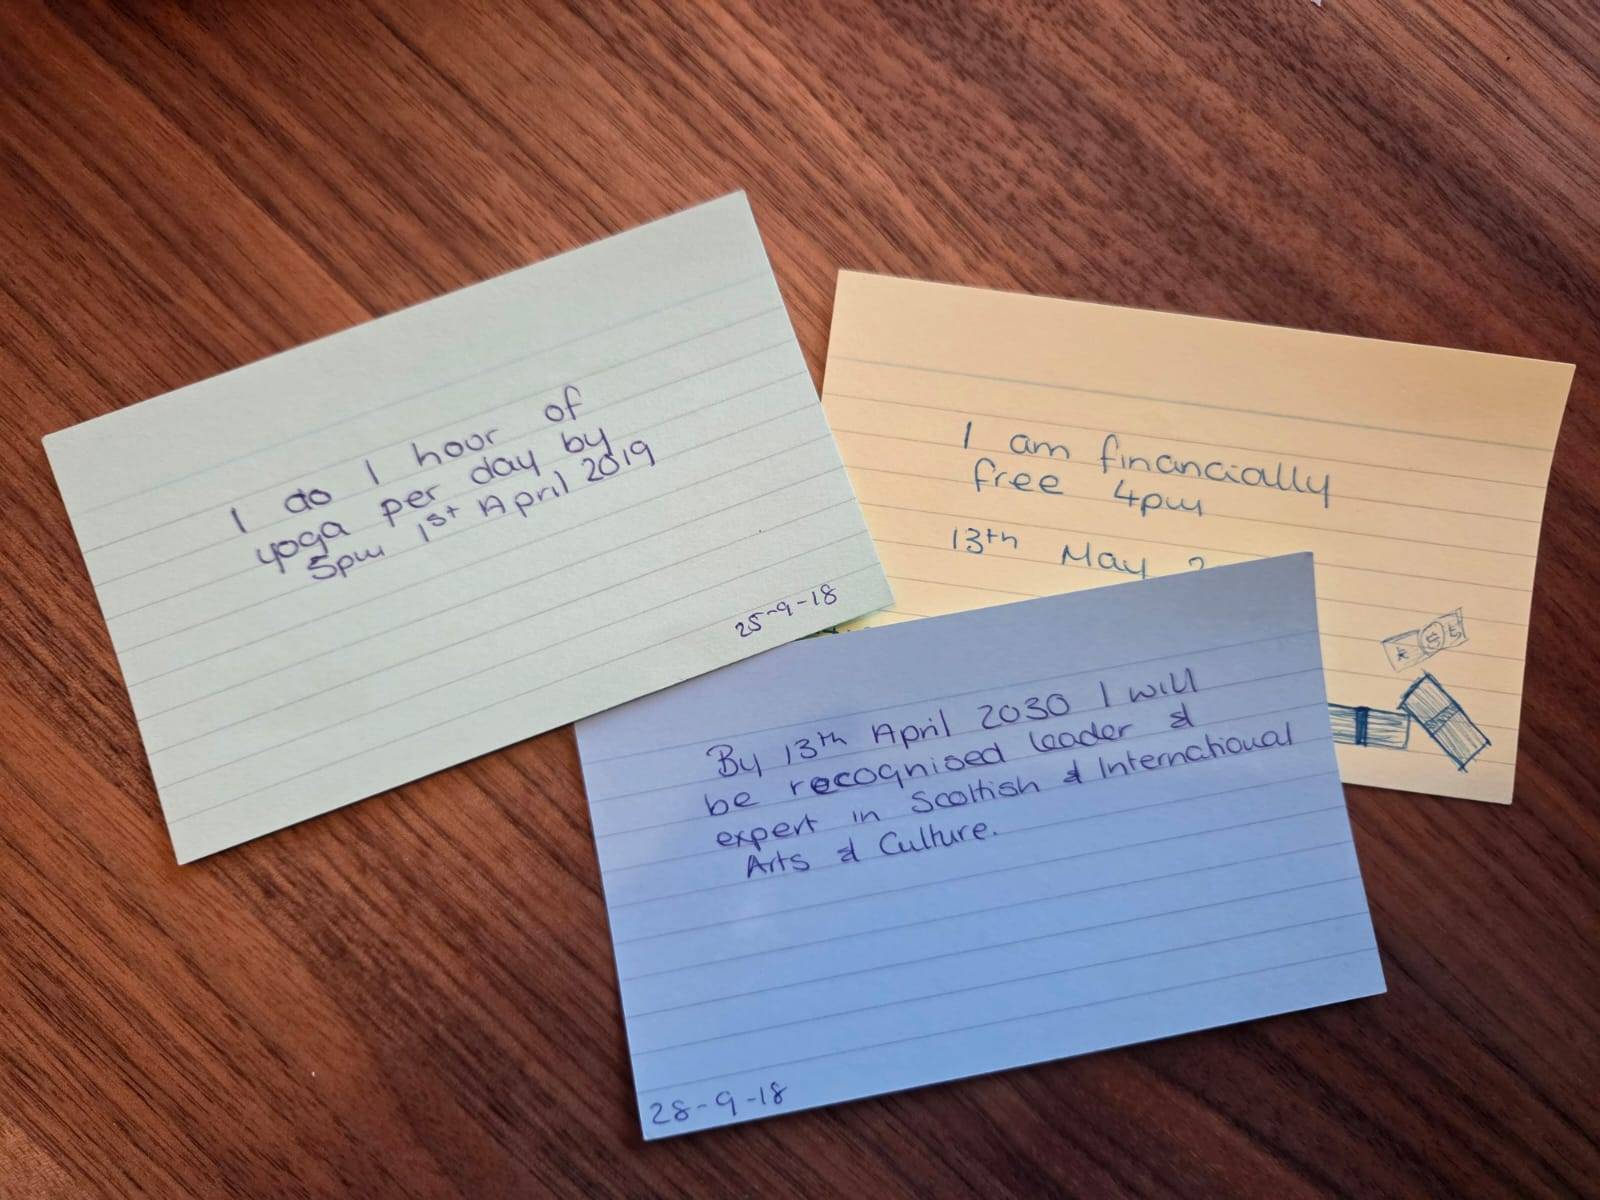 I do 1 hour of
yoga per day by
5pm 1st April 2019
25-9-18
I am financially
free 4pm
13th May 2
By 13th April 2030 I will
be recognised leader &
expert in Scottish & International
Arts & Culture.
28-9-18